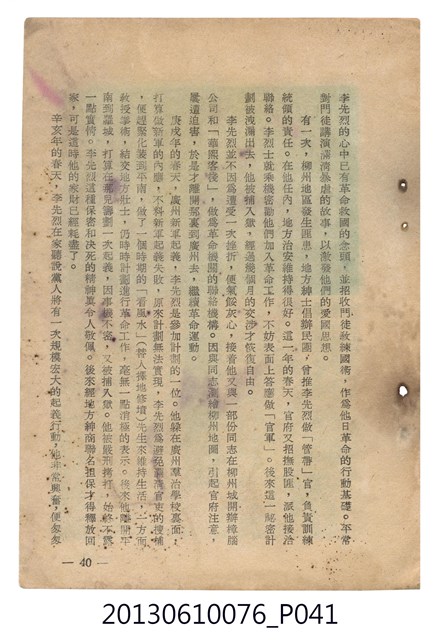 李先烈的心中已有革命救國的念頭，並招收門徒教練國術，作爲他日革命的行動基礎。平常
對門徒講演滿清暴虐的故事，以激發他們的愛國思想。
有一次，柳州地區發生匪患，地方紳士倡辦民團，曾推李先烈做「管帶」一官，負責訓練
統領的責任。在他任內，地方治安維持得很好。這一年的春天，官府又招撫股匪，派他接洽
聯絡。李烈士就乘機密勸他們加入革命工作，不妨表面上答應做「官軍」。後來這一秘密計
劃被洩漏出去，他被捕入獄，經過幾個月的交涉才恢復自由。
李先烈並不因爲遭受一次挫折，便氣餒灰心，接着他又與一部份同志在柳州城開辦樟腦
公司和「華園客棧」，做爲革命機關的聯絡機構。因與同志測繪柳州地圖，引起官府注意，
屢遭迫害，於是才離開都裏到廣州去，繼續革命運動。
庚戌年的春天，廣州新軍起義，李先烈是參加計劃的一位。他躲在廣州軍治學校裏面，
打算做新軍的內應，不料新軍起義失敗，原來計劃無法實現，李先烈爲避免軍隊官吏的搜捕
，便經聚化裝到平南，做了一個時期的「看風水」（替人擇地修墳）先生來維持生活，一方面
教授拳術，結交地方壯士，仍時時計劃進行革命工作，毫無一點消極的表示。後來他離開平
南到羅城，打算在那兒籌劃一次起義，因事機不密，又被捕入獄。他被嚴刑拷打，始終不露
一點實情。李先烈這種保密和決死的精神眞令人敬佩。後來經地方紳商聯名担保才得釋放回
家，可是這時他的家財已經耗盡了。
辛亥年的春天，李先烈在家聽說黨人將有一次規模宏大的起義行動，他非常興奮，便匆匆
— 40 —
20130610076_P041